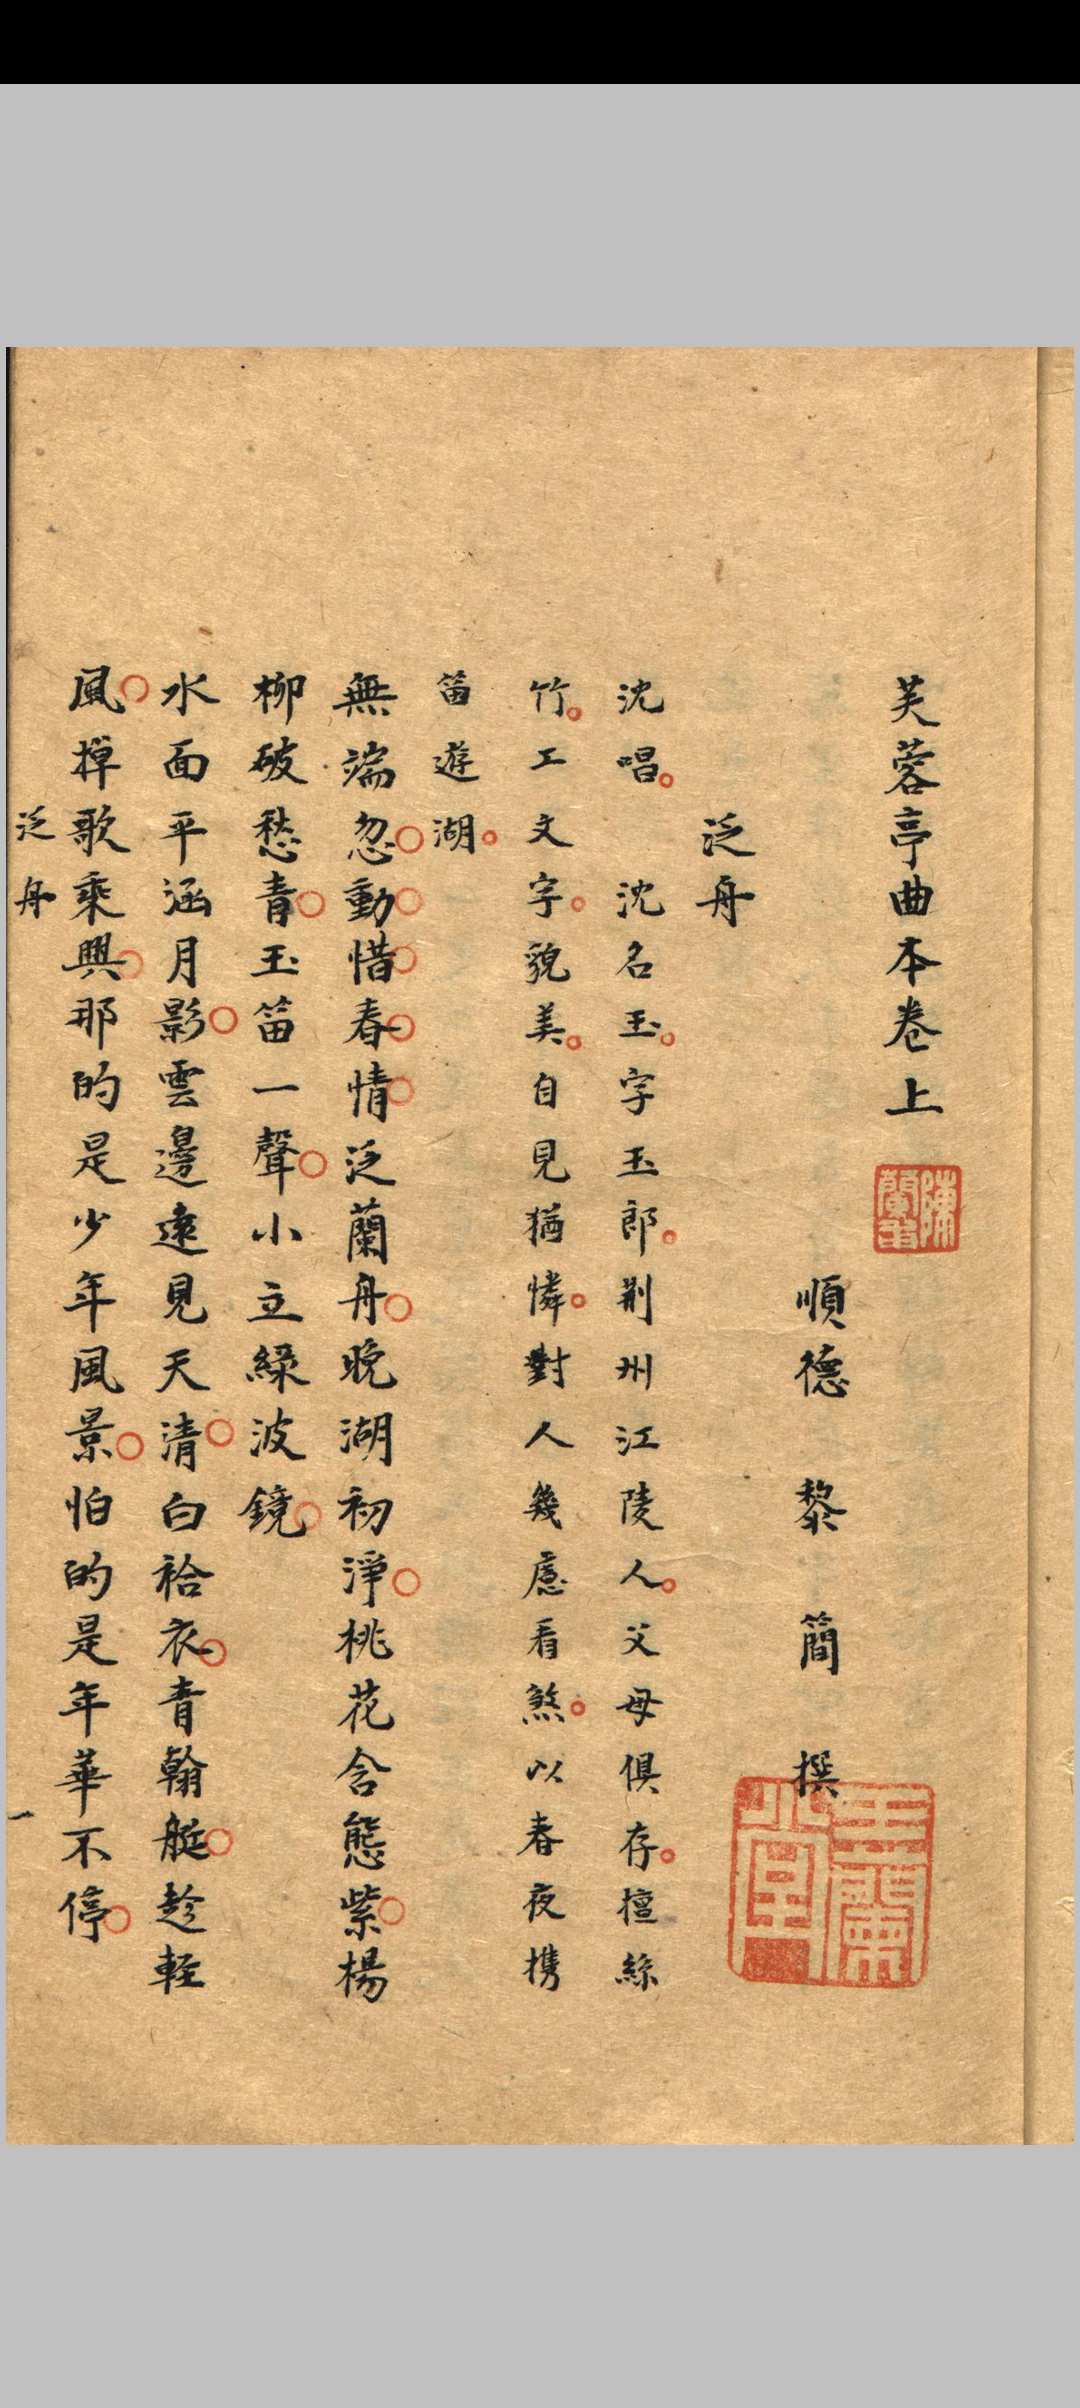 芙蓉亭曲本卷上
陳
蘭甫
順德　黎　簡　撰
泛舟
沈唱　沈名玉字玉郎荆州江陵人父母俱存擅絲
竹工文字貌美自見猶憐對人幾慮看煞以春夜携
笛遊湖
無端忽動惜春情泛蘭舟晚湖初淨桃花含態紫楊
柳破愁青玉笛一聲小立綠波鏡
水面平涵月影雲邊遠見天清白袷衣青翰艇趁輕
風掉歌乘興那的是少年風景怕的是年華不停
泛舟　一